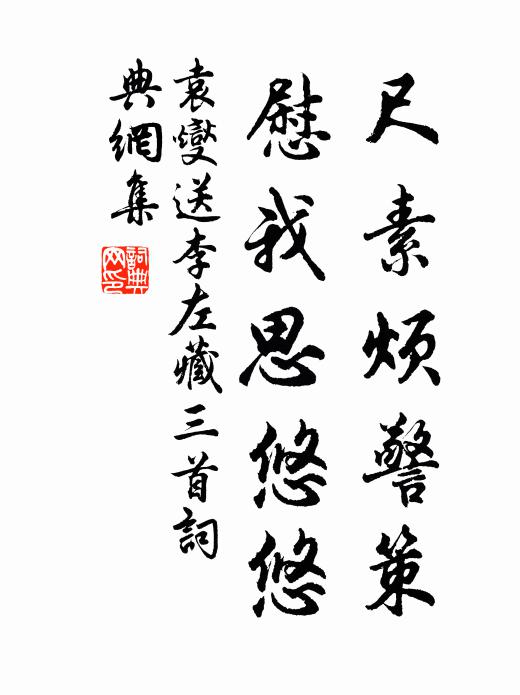 尺素煩警策
慰我思悠悠
袁燮送李左藏三首詞
典網集
詞典
网印